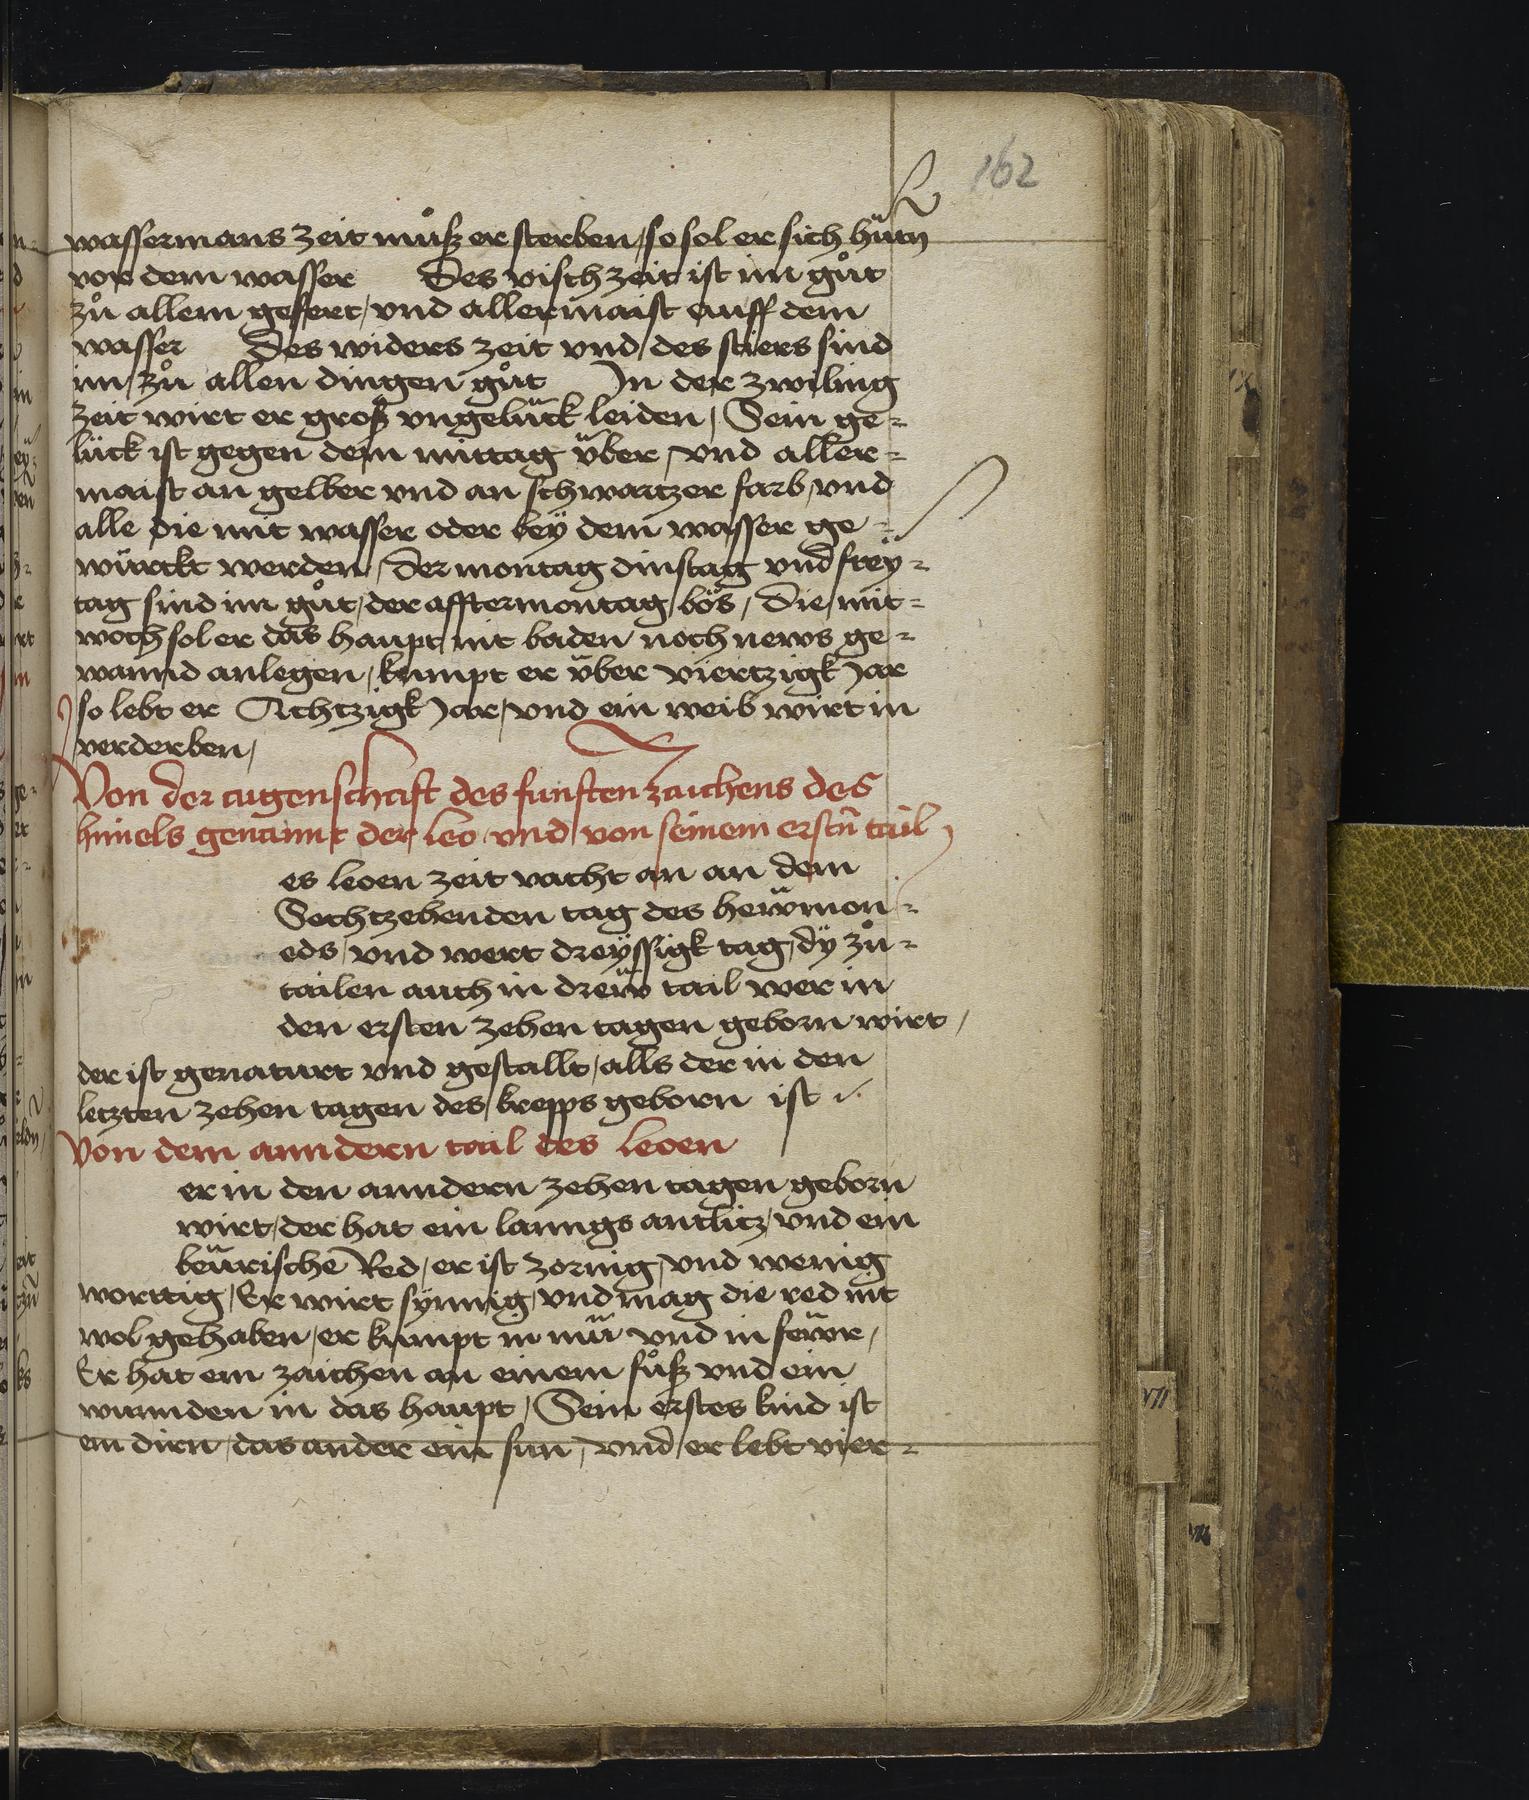 162
wassermans zeit můß er sterben / so sol er sich hütñ
vor dem wasser Des visch zeit ist im gůt
zů allem gefert / vnd aller maist auff dem
wasser Des widers zeit vnd des stiers sind
im zů allen dingen gůt In der zwiling
zeit wirt er groß vngelück leiden / Sein ge=
lück ist gegen dem mittag über / vnd aller=
maist an gelber vnd an schwartzer farb / vnd
alle die mit wasser oder bey dem wasser ge=
würckt werden / Der montag dinstag vnd freÿ=
tag sind im gůt / der afftermontag bös / Die mit=
woch sol er das haupt nit baden noch news ge=
wannd anlegen / kumpt er über viertzigk Jar
so lebt er Achtzigk Jar / vnd ein weib wirt in
verderben /
Von der aigenschafft des funften zaichens des
himels genannt der leo vnd von seinem erstñ tail
es leoen zeit vacht an an dem
Sechtzehenden tag des hewmon=
eds / vnd wert dreÿssigk tag / dÿ zů=
tailen auch in drew tail wer in
den ersten zehen tagen geborn wirt /
der ist genaturt vnd gestallt / alls der in den
letzten zehen tagen des krepps geborn ist
Von dem anndern tail des leoen
er in den anndern zehen tagen geborn
wirt / der hat ein lanngs antlitz / vnd ein
beürische Red / er ist zornig / vnd wenig
worttig / Er wirt synnig / vnd mag die red nit
wol gehaben / er kumpt in mü vnd in fewr /
Er hat ein zaichen an einem fůß vnd ein
wunnden in das haupt / Sein erstes kind ist
ein dirn / das ander ein sun / vnd er lebt vier=
VII